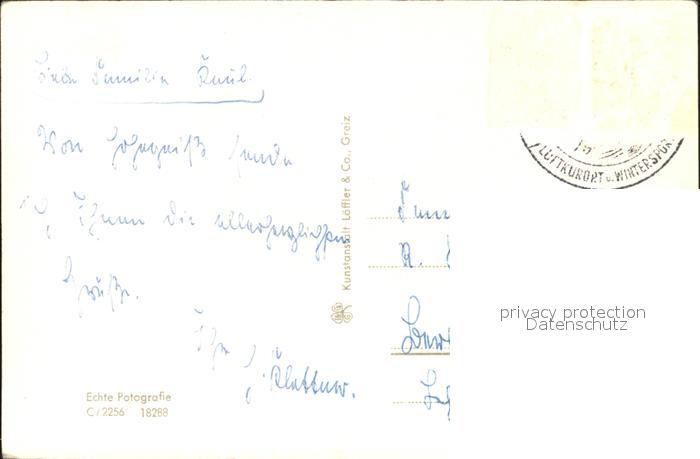 Liebe Familie Kaul.
Von Hohegeiß sende
ich Ihnen die allerherzlichsten
Grüße.
Ihr
Echte Potografie
C/2256 18288
Kunstanstalt Löffler & Co., Greiz
LUFTKURORT u. WINTERSPOR
Fam
privacy protection
Datenschutz